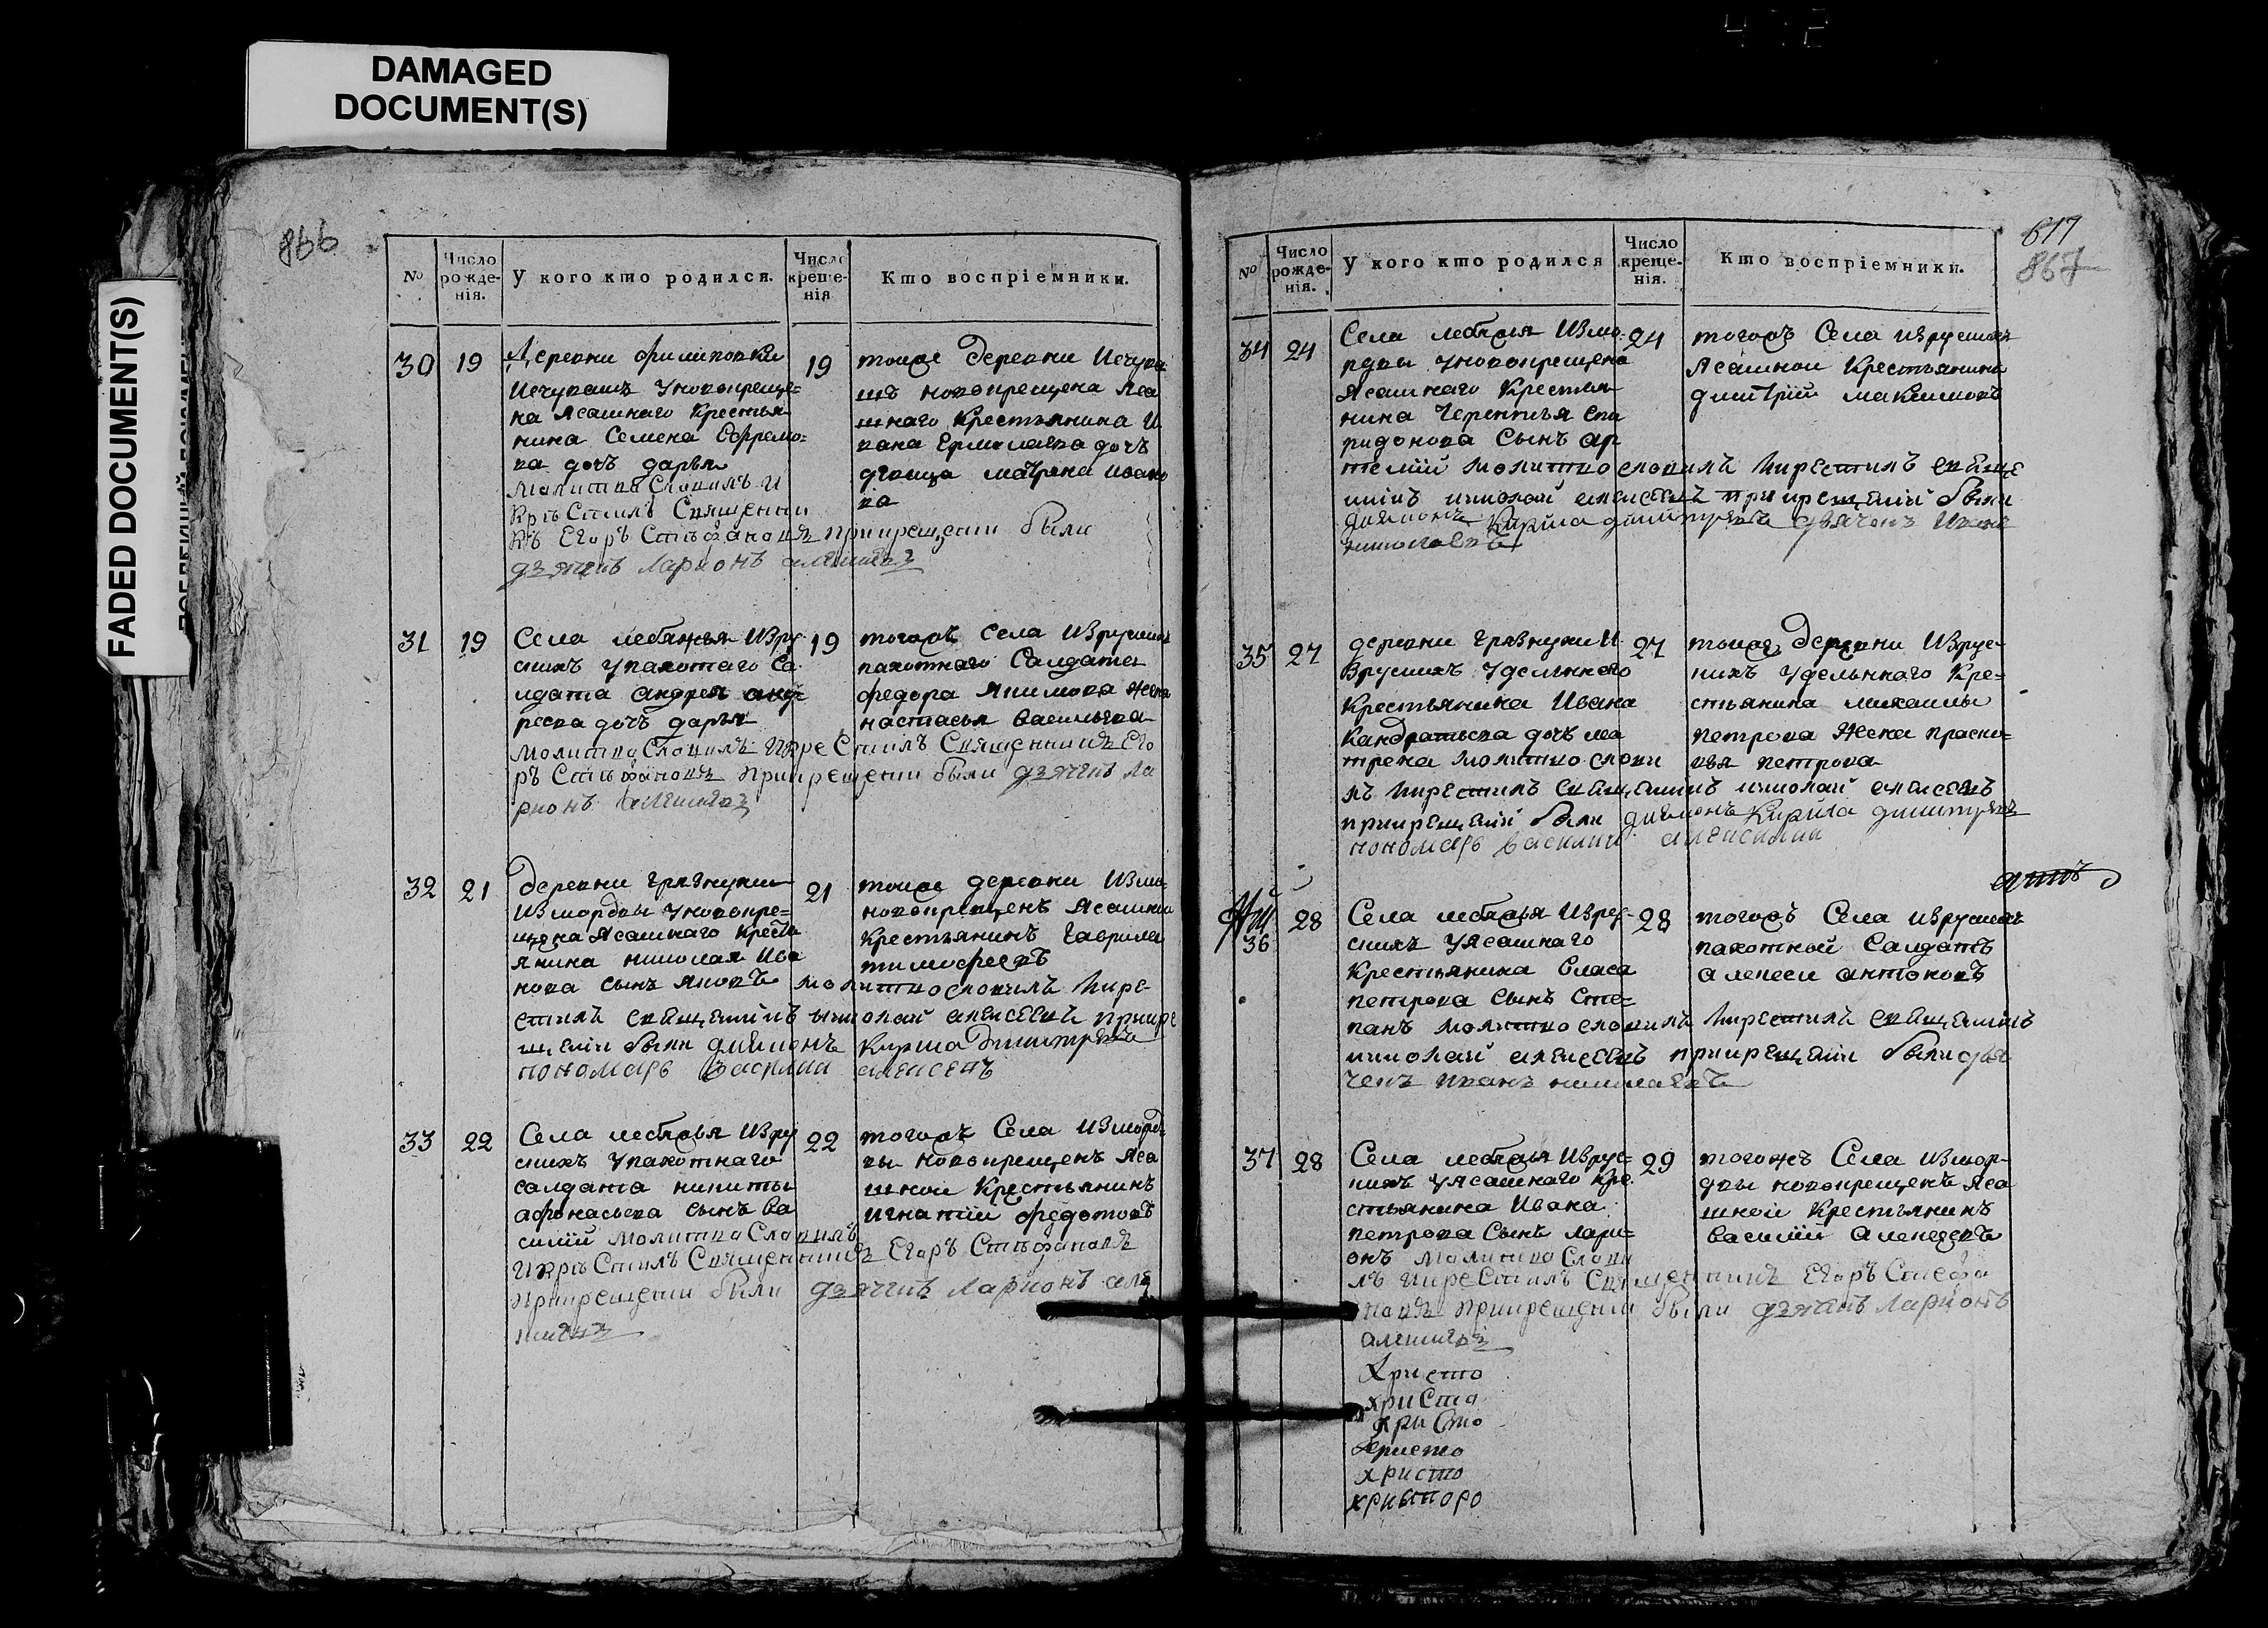 DAMAGED
DOCUMENT(S)
FADED DOCUMENT(S)
866
№
Число рожде-нія.
У кого кто родился.
Число креще-нія
Кто воспріемники.
30
19
Деревни филиповки
Исчувашъ Уновокреще=
на Ясашнаго Крестья
нина Семена Ефремо=
ва дочь дарья
Молитво Словилъ И
КрѣСтилъ Священни
къ ЕГоръ Стѣфановъ прикрещении были
дьячекъ Ларионъ
19
тоиже деревни Исчува
шъ новокрещена Яса
шнаго Крестьянина И
вана Ермолаева дочь
девица матрена ивано
ва
31
19
Села лебяжья Изру
скихъ Упахотнаго Са
лдата андрея анд
реева дочь дарья
Молитво Словилъ ИкреСтилъ Священникъ Его
ръ Стѣфановъ Прикрещении были дьячекъ Ла
рионъ
19
тогожъ Села Изрускихъ
пахотнаго Салдата
федора Якимова жена
настасья васильева
32
21
деревни грязнухи
Измордвы Уновокре=
щена Ясашнаго Кресть
янина николая Ива
нова сынъ Яковъ молитвословилъ Икре
стилъ священникъ николай алексеевъ прикре
щении были диаконъ Кирила димитревъ
пономарь Василии алексеевъ
21
тоиже деревни Измо
новокрещенъ Ясашнои
Крестьянинъ Гаврила
тимофеевъ
33
22
Села лебяжья Изру
скихъ Упахотнаго
салдата никиты
афонасьева сынъ ва
силій Молитво Словилъ
ИкрѣСтилъ Священникъ ЕГоръ Стѣфановъ
Прикрещении были дьячекъ Ларионъ
22
тогожъ Села Изморд
вы новокрещенъ Яса
шнои Крестьянинъ
Игнатій федотовъ
617
867
№
Число рожде-нія.
У кого кто родился
Число креще-нія.
Кто воспріемники.
34
24
Села лебяжья Измо
рдвы Уновокрещена
Ясашнаго Крестья
нина Терентья спи
ридонова Сынъ ар
темій молитвословилъ Икрестилъ священ
никъ николай алексеевъ прикрещеніи были
диаконъ Кирила димитревъ дьячекъ Иванъ
николаевъ
24
тогожъ Села изрускихъ
Ясашнои Крестьянинъ
дмитрій максимовъ
35
27
деревни грязнухи И
зрускихъ Удельнаго
Крестьянина Ивана
Кандратьева дочь ма
трена молитвослови
лъ Икрестилъ священникъ николай алексеевъ
прикрещеніи были диаконъ Кирила димитревъ
пономарь василии
27
тоиже деревни Изрус=
кихъ Удельнаго Кре=
стьянина михаилы
петрова Жена праско=
вья петрова
36
28
Села лебяжья Изрус-
скихъ Уясашнаго
Крестьянина власа
петрова сынъ Сте=
панъ молитвословилъ Икрестилъ священникъ
николай алексеевъ прикрещеніи были дья
чекъ иванъ николаевъ
28
тогожъ Села изрускихъ
пахотный Салдатъ
алексеи антоновъ
37
28
Села лебяжья Изрус=
кихъ Уясашнаго Кре
стьянина Ивана
петрова Сынъ Лари=
онъ Молитво Слови
лъ ИкреСтилъ Священникъ ЕГоръ Стефа
новъ Прикрещении были дьячекъ Ларионъ
29
тогожъ Села измор-
двы новокрещенъ Яса
шнои Крестьянинъ
василій
Христо
ХриСто
ХриСто
Христо
христо